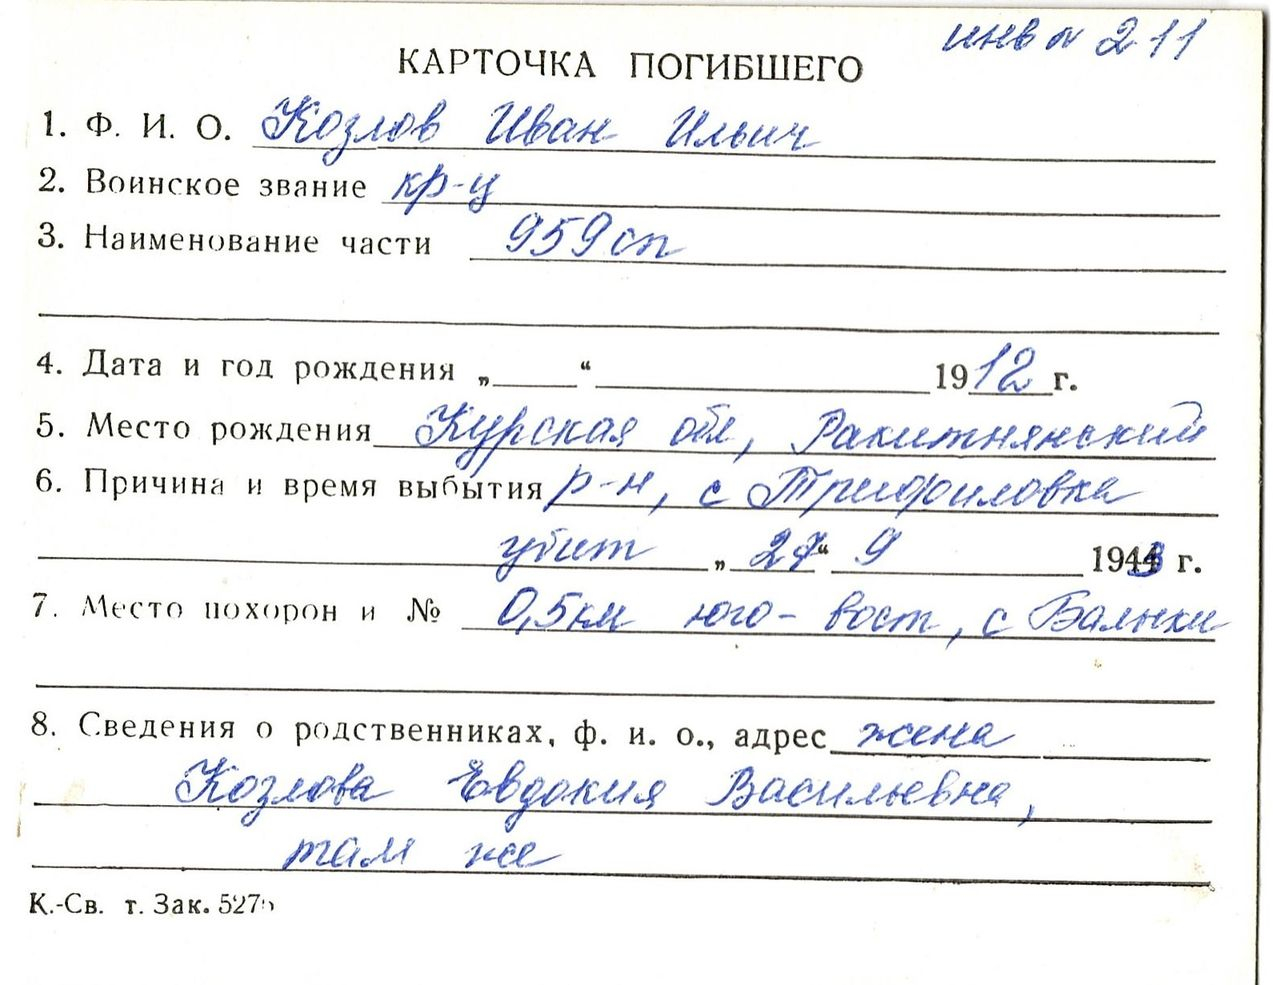 инв № 211
КАРТОЧКА ПОГИБШЕГО
1. Ф. И. О. Козлов Иван Ильич
2. Воинское звание кр-ц
3. Наименование части 959 сп
4. Дата и год рождения „ “ 1912 г.
5. Место рождения Курская обл, Ракитнянский
6. Причина и время выбытия р-н, с Трифиловка
убит „27“ 9 1943 г.
7. Место похорон и № 0,5 км юго-вост, с Балыки
8. Сведения о родственниках, ф. и. о., адрес жена
Козлова Евдокия Васильевна,
там же
К.-Св. т. Зак. 527